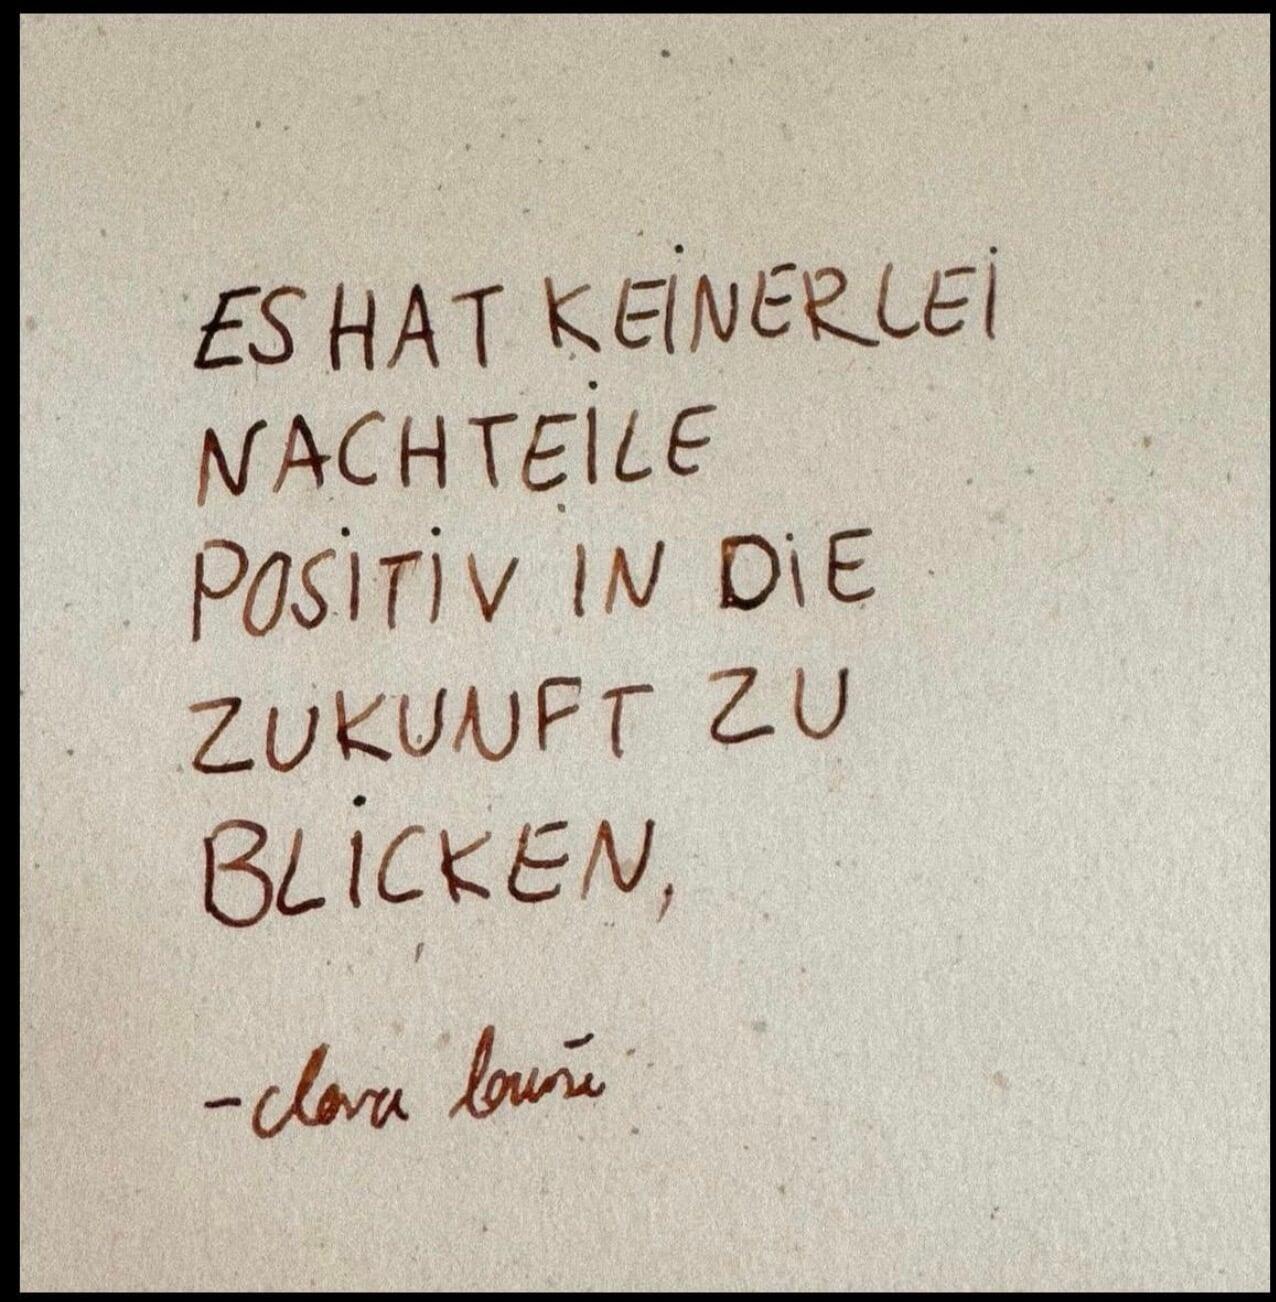 ES HAT KEINERLEI
NACHTEILE
POSITIV IN DIE
ZUKUNFT ZU
BLICKEN,
-clara louise